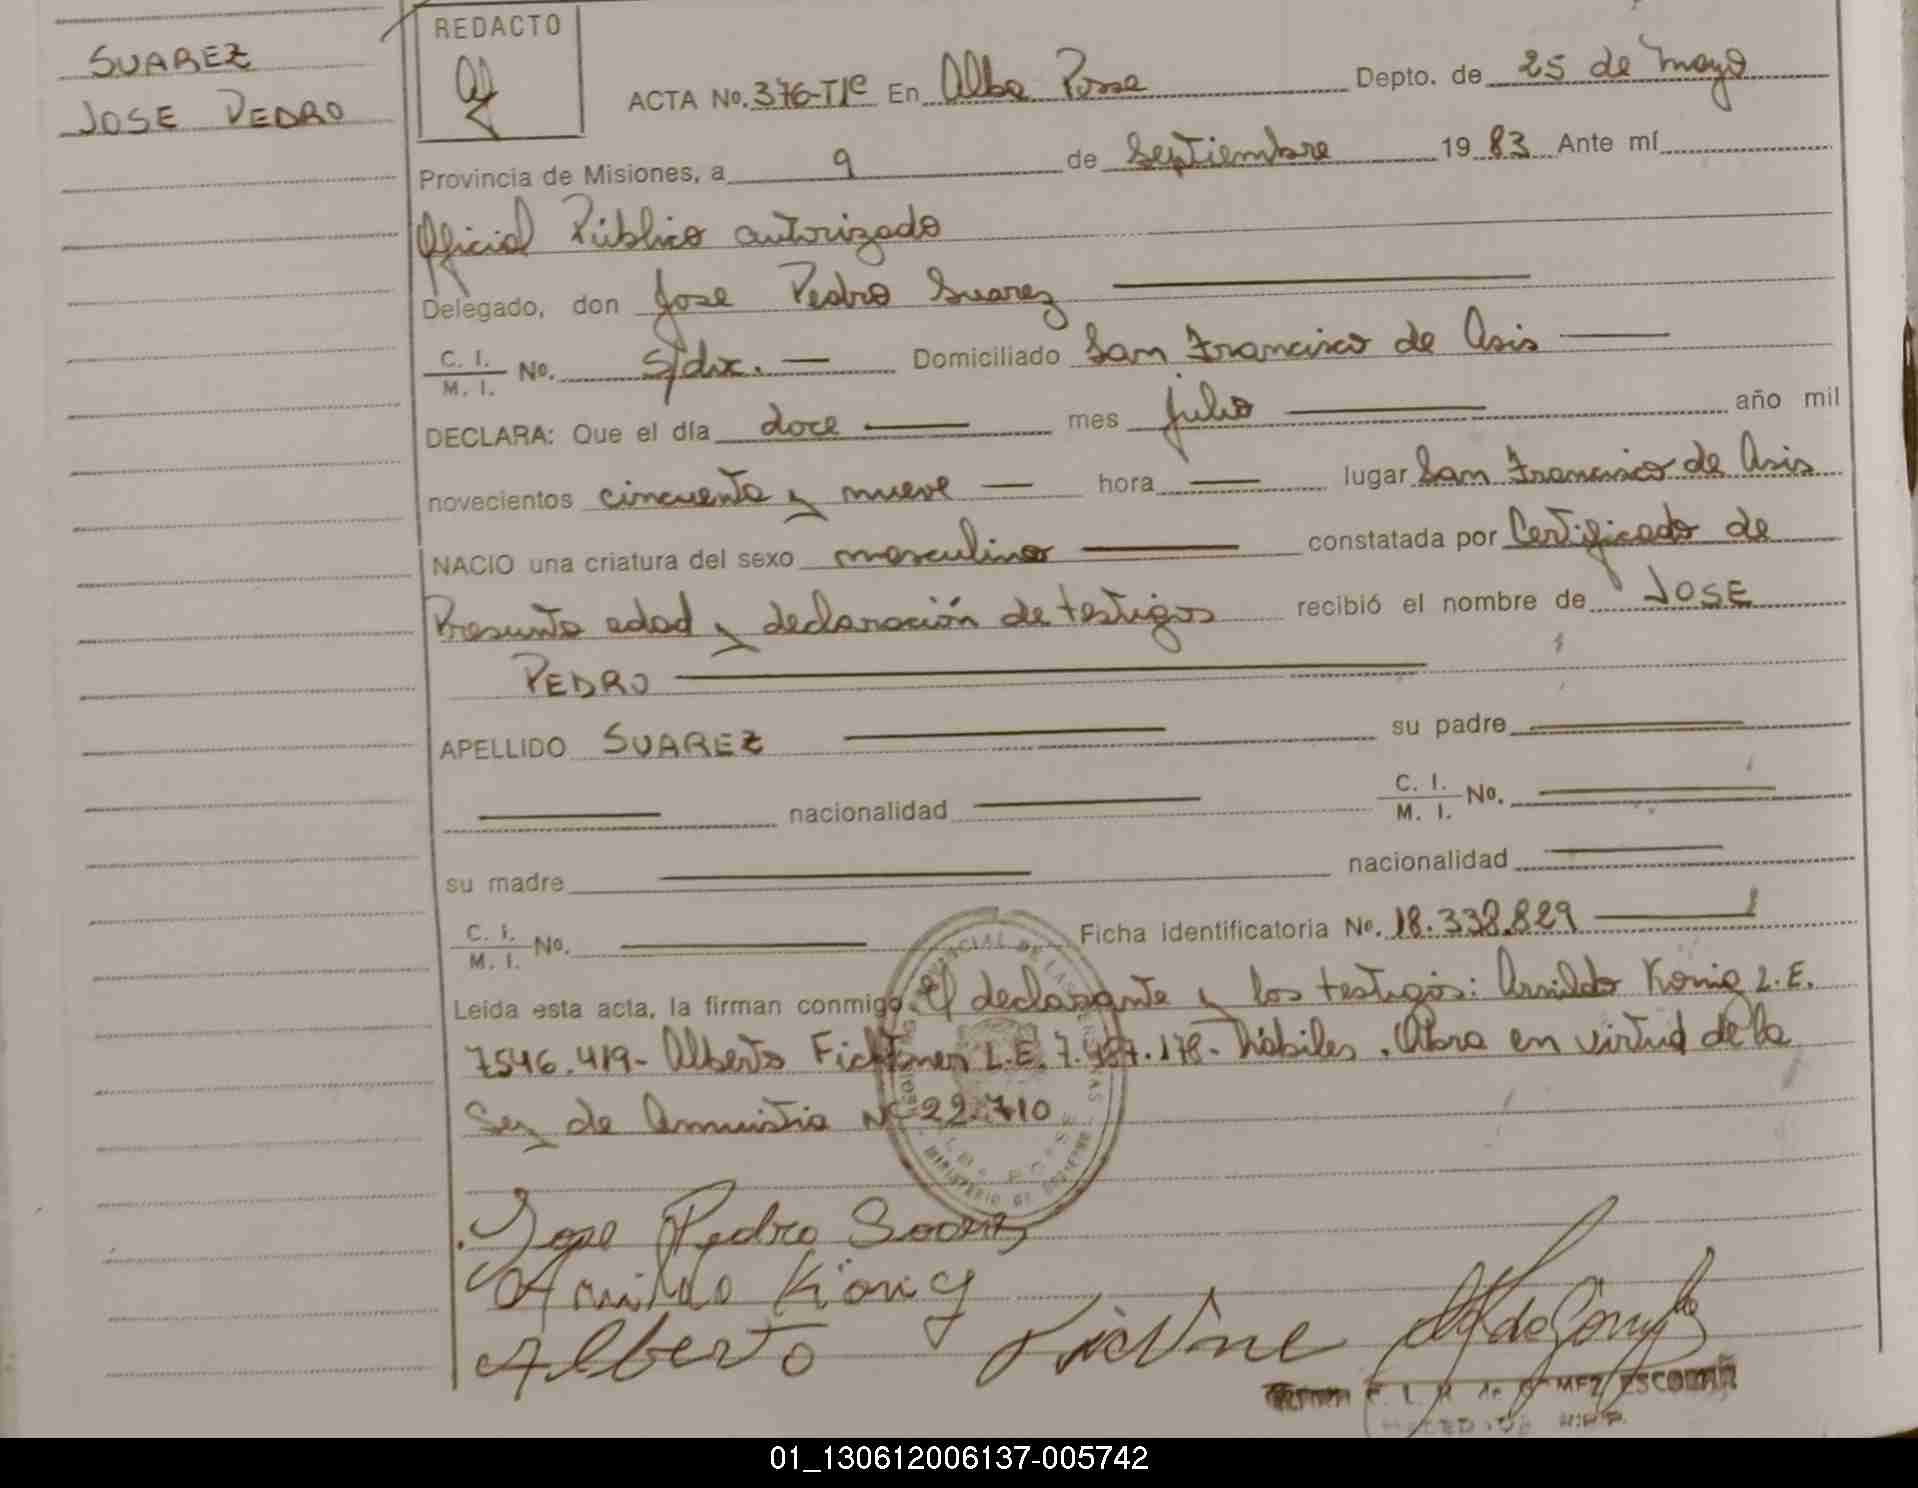 SUAREZ
JOSE PEDRO
REDACTO
ACTA No. 376-T1º En Alba Posse Depto. de 25 de Mayo
Provincia de Misiones, a 9 de Septiembre 1983 Ante mí
Oficial Público autorizado
Delegado, don Jose Pedro Suarez
C. I. / M. I. No. s/dx. Domiciliado San Francisco de Asis
DECLARA: Que el día doce mes julio año mil
novecientos cincuenta y nueve hora lugar San Francisco de Asis
NACIO una criatura del sexo masculino constatada por Certificado de
Presunta edad y declaración de testigos recibió el nombre de JOSE
PEDRO
APELLIDO SUAREZ su padre
nacionalidad C. I. / M. I. No.
su madre nacionalidad
C. I. / M. I. No. Ficha identificatoria No. 18.338.829
Leída esta acta, la firman conmigo El declarante y los testigos: Arnildo König L.E.
7546.419- Alberto Fichtner L.E. 7.487.178- hábiles. Obra en virtud de la
Ley de Amnistia Nº 22.710
MINISTERIO DE GOBIERNO
Jose Pedro Soarez
Arnildo König
Alberto
01_130612006137-005742